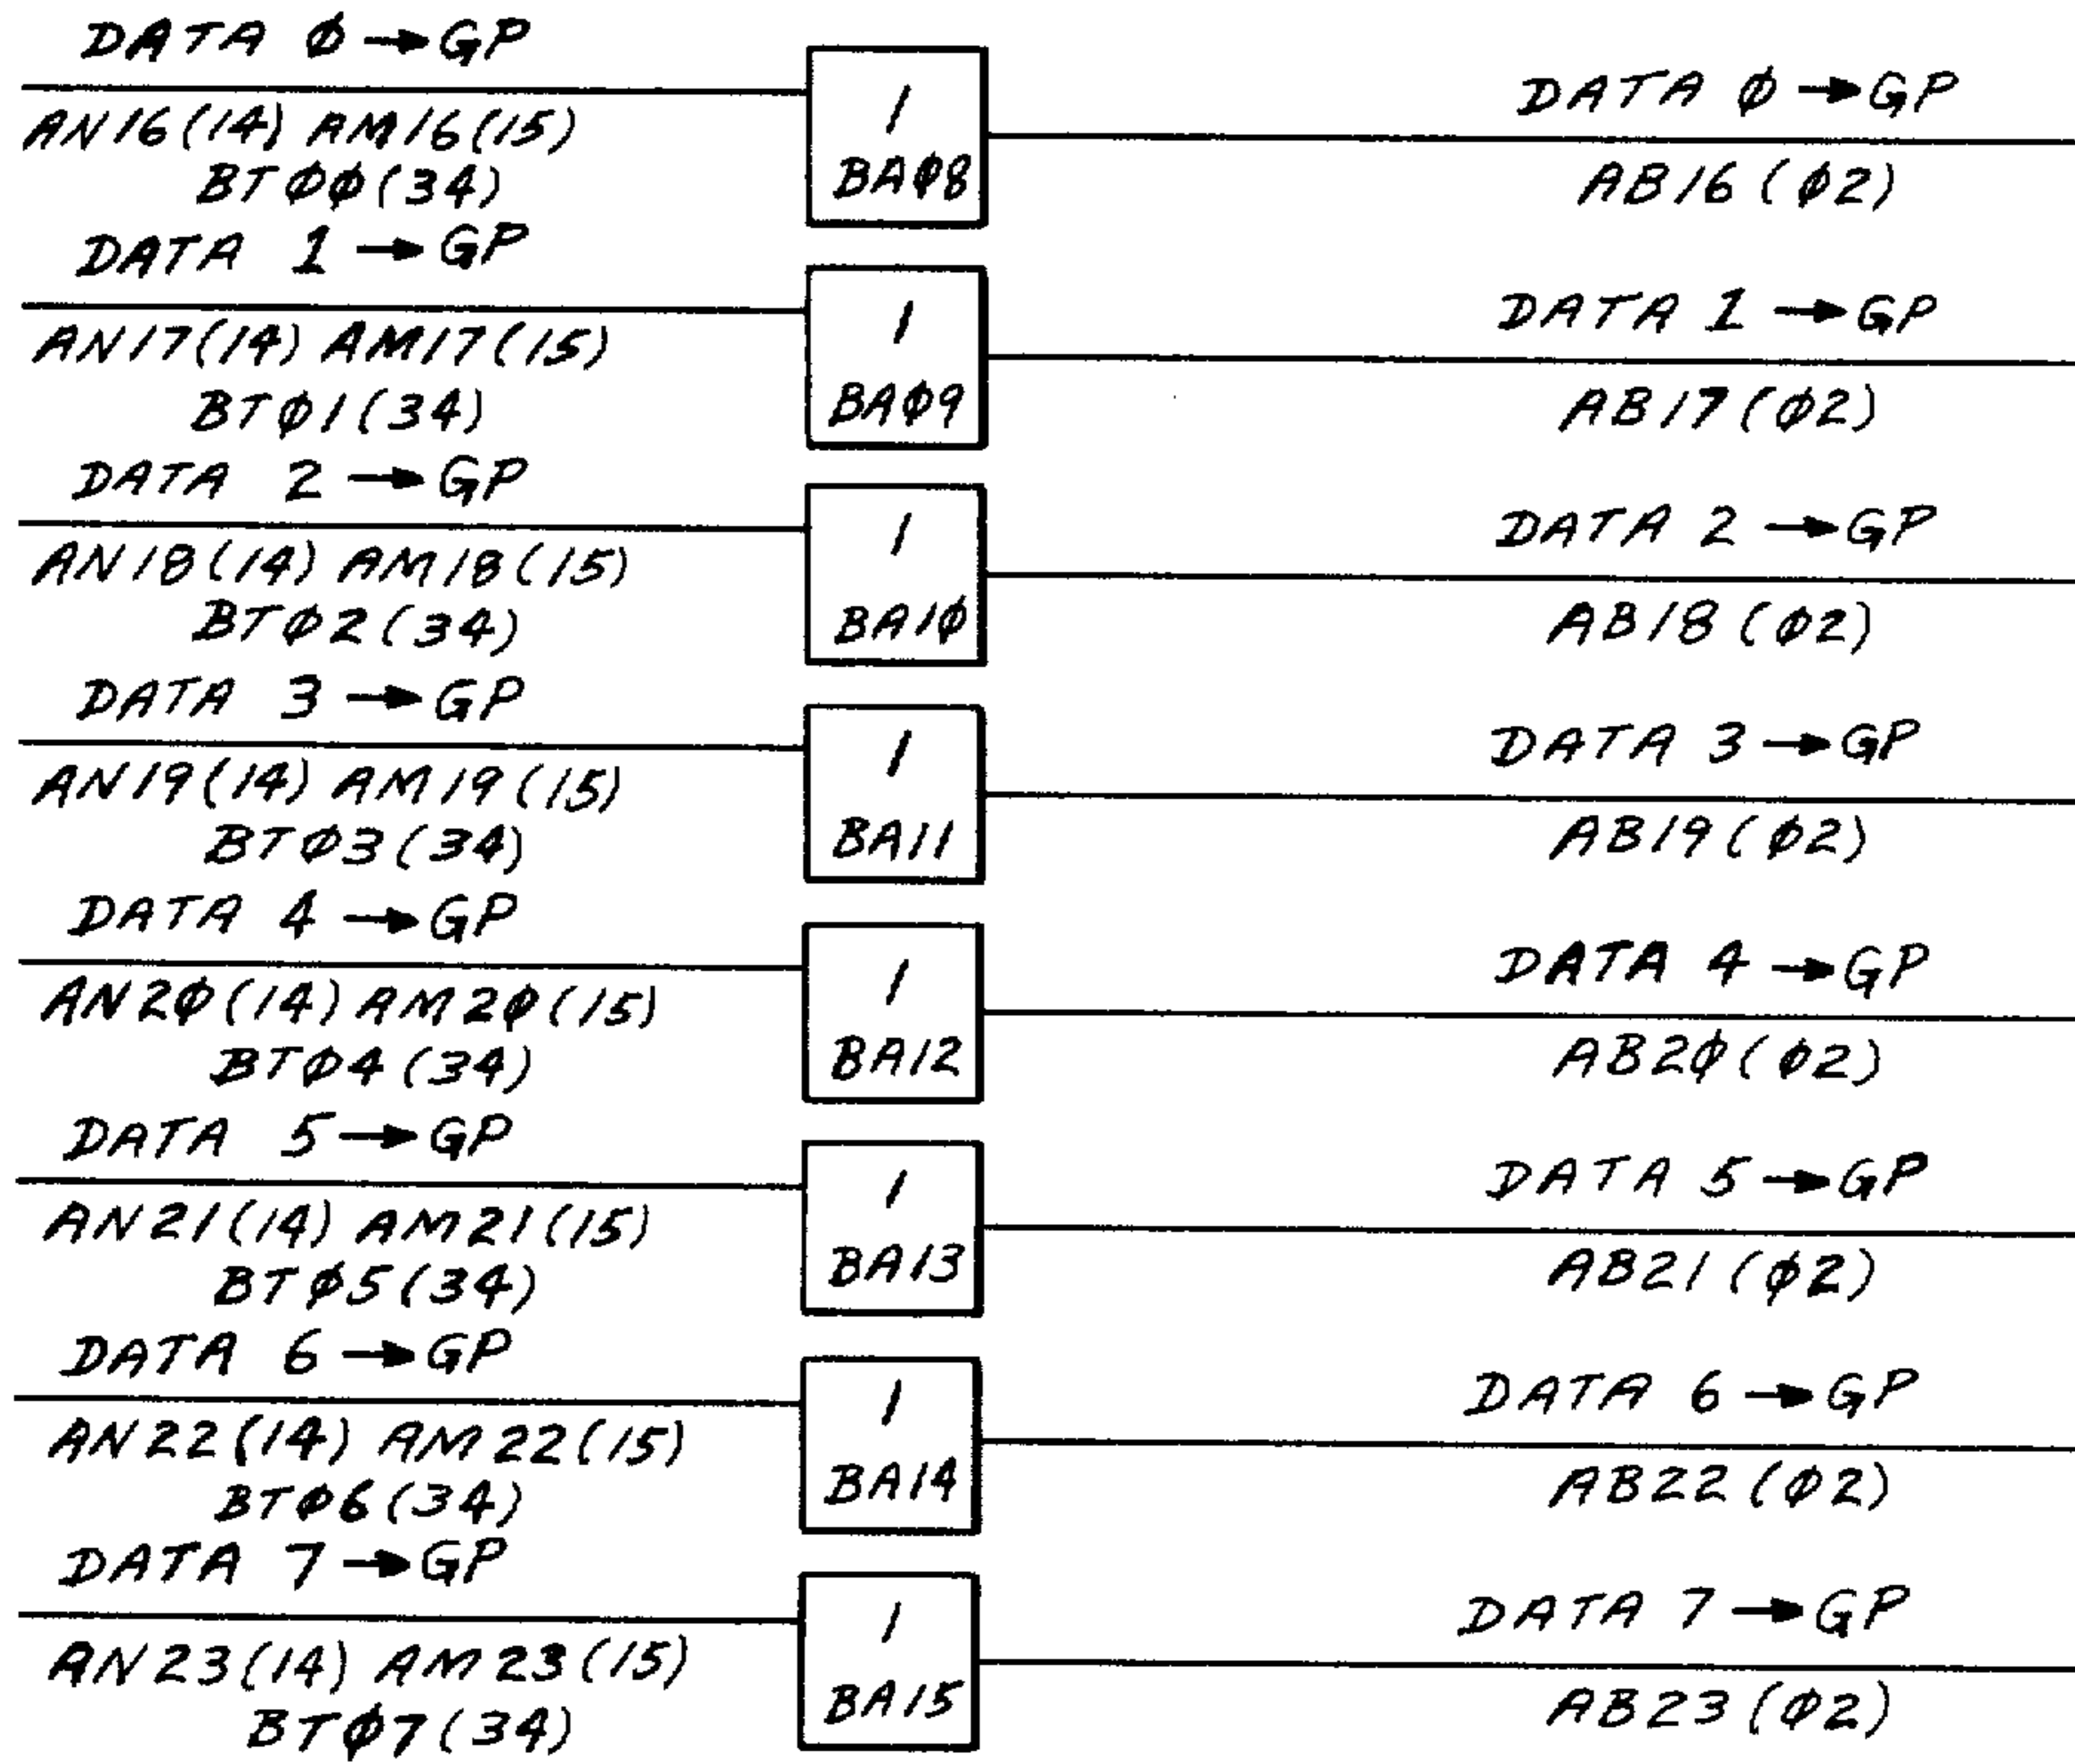 DATA Ø → GP
AN16(14) AM16(15)
BTØØ(34)
1
BAØ8
DATA Ø → GP
AB16(Ø2)
DATA 1 → GP
AN17(14) AM17(15)
BTØ1(34)
1
BAØ9
DATA 1 → GP
AB17(Ø2)
DATA 2 → GP
AN18(14) AM18(15)
BTØ2(34)
1
BA1Ø
DATA 2 → GP
AB18(Ø2)
DATA 3 → GP
AN19(14) AM19(15)
BTØ3(34)
1
BA11
DATA 3 → GP
AB19(Ø2)
DATA 4 → GP
AN2Ø(14) AM2Ø(15)
BTØ4(34)
1
BA12
DATA 4 → GP
AB2Ø(Ø2)
DATA 5 → GP
AN21(14) AM21(15)
BTØ5(34)
1
BA13
DATA 5 → GP
AB21(Ø2)
DATA 6 → GP
AN22(14) AM22(15)
BTØ6(34)
1
BA14
DATA 6 → GP
AB22(Ø2)
DATA 7 → GP
AN23(14) AM23(15)
BTØ7(34)
1
BA15
DATA 7 → GP
AB23(Ø2)